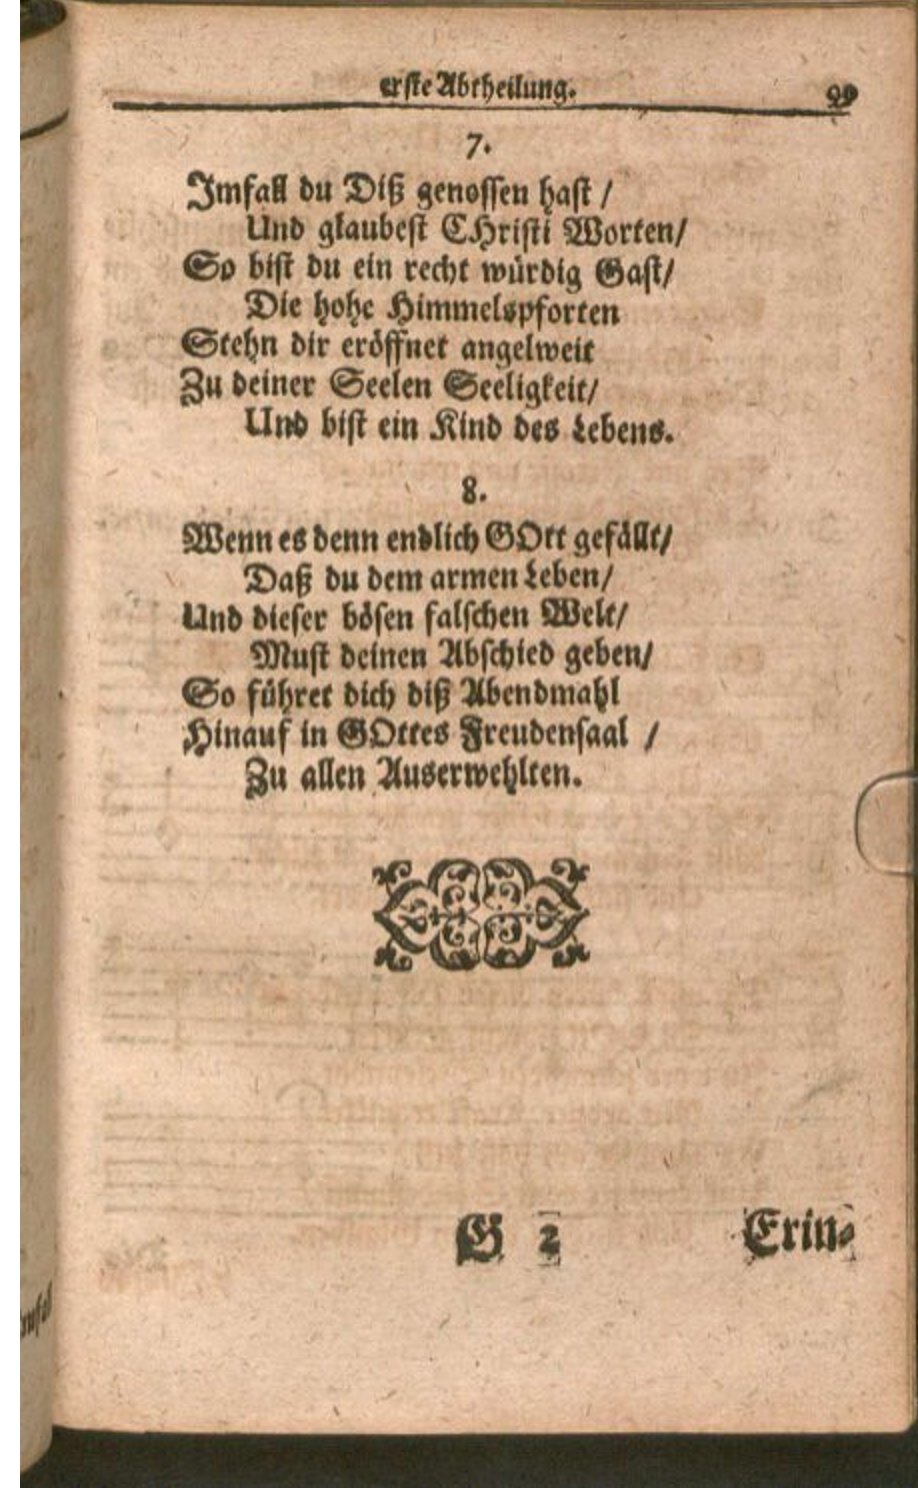 erste Abtheilung. 99
7.
Imfall du Diß genossen hast /
Und glaubest CHristi Worten/
So bist du ein recht würdig Gast/
Die hohe Himmelspforten
Stehn dir eröffnet angelweit
Zu deiner Seelen Seeligkeit/
Und bist ein Kind des Lebens.
8.
Wenn es denn endlich GOtt gefällt/
Daß du dem armen Leben/
Und dieser bösen falschen Welt/
Must deinen Abschied geben/
So führet dich diß Abendmahl
Hinauf in GOttes Freudensaal /
Zu allen Auserwehlten.
G 2 Erin-